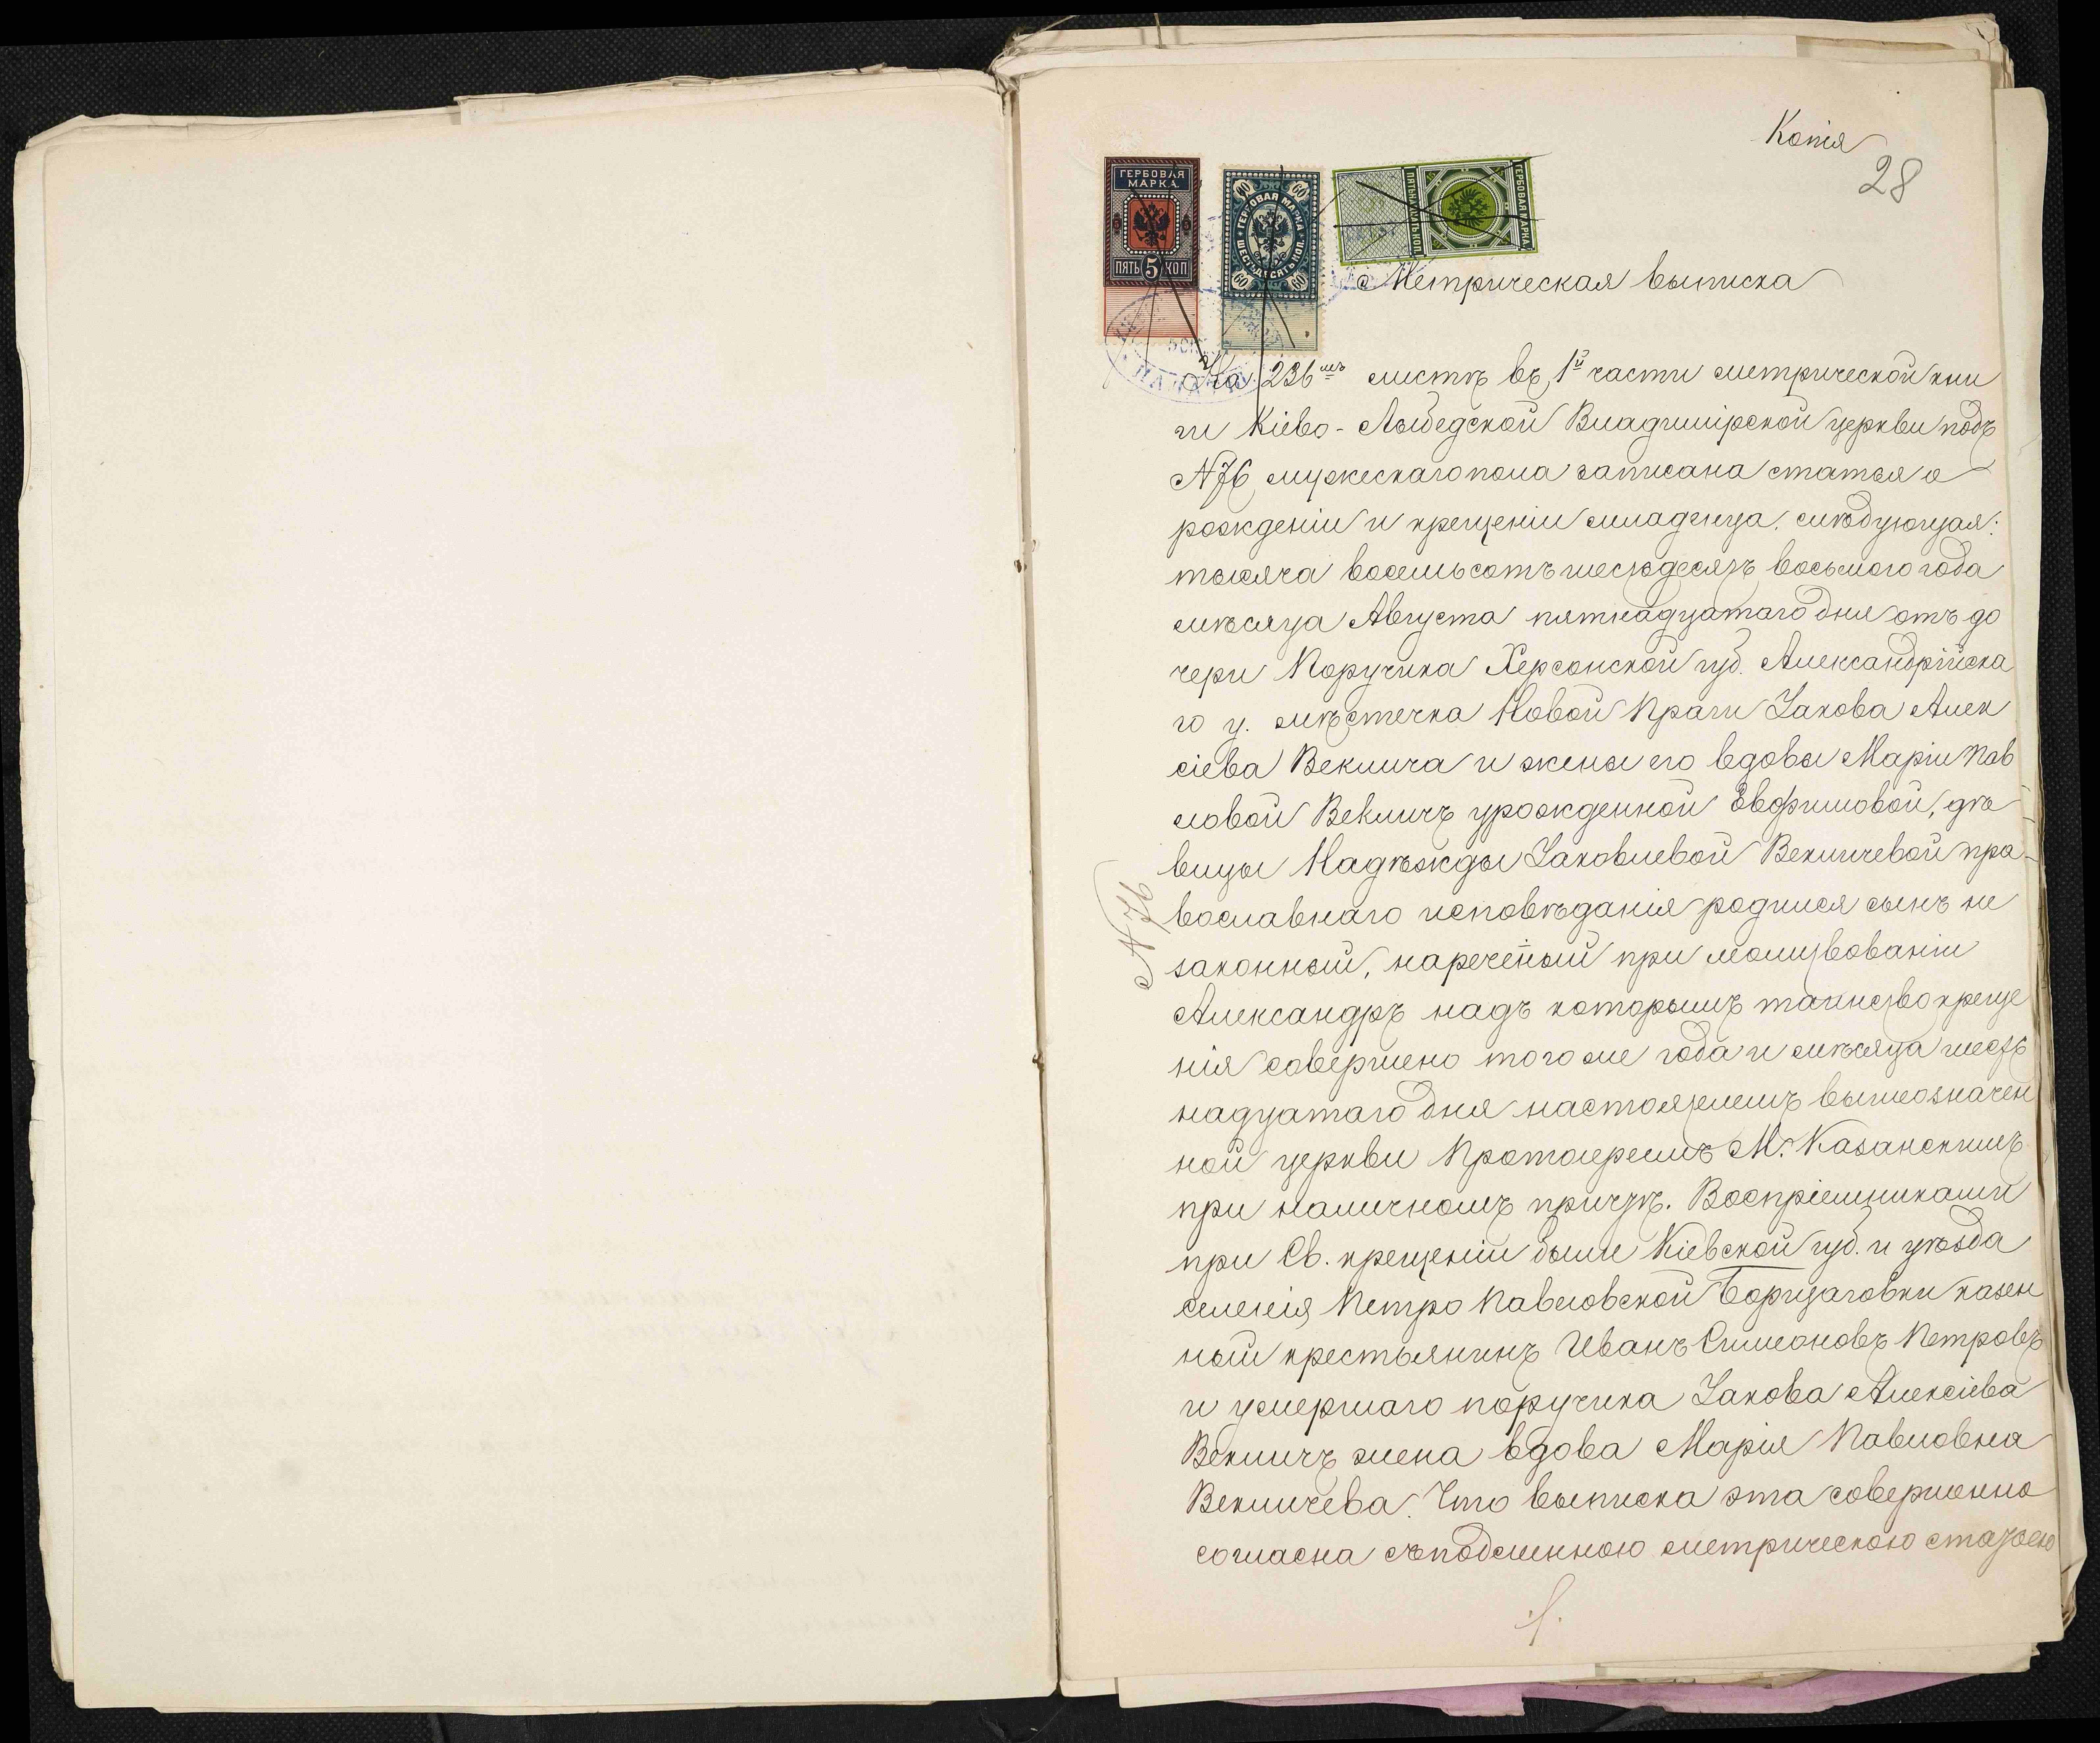 Копія
28
ГЕРБОВАЯ
МАРКА
ПЯТЬ 5 КОП
ГЕРБОВАЯ МАРКА
ШЕСТЬДЕСЯТЪ КОП.
60 60
60 60
ГЕРБОВАЯ МАРКА
Метрическая выписка
На 236мъ листѣ въ 1й части метрической кни
ги Кіево-Лыбедской Владимірской церкви подъ
N 76 мужескаго пола записана статья о
рожденіи и крещеніи младенца, слѣдующая:
тысяча восемьсотъ шестьдесятъ восьмого года
мѣсяца Августа пятнадцатаго дня отъ до
чери Поручика Херсонской губ. Александрійска
го у. мѣстечка Новой Праги Іакова Алек
сіева Веклича и жены его вдовы Маріи Пав
ловой Векличъ урожденной Евфимовой, дѣ-
вицы Надѣжды Іаковлевой Векличевой пра-
вославнаго исповѣданія родился сынъ не
законный, нареченый при молитвованіи
N 76
Александръ надъ которымъ таинство креще
нія совершено того же года и мѣсяца шест
надцатаго дня настоятелемъ вышеозначен
ной церкви Протоіереемъ М. Казанскимъ
при наличномъ причтѣ. Воспріемниками
при Св. крещеніи были Кіевской губ. и уѣзда
селенія Петро Павловской Борщаговки казен
ный крестьянинъ Иванъ Симеоновъ Петровъ
и умершаго поручика Іакова Алексіева
Векличъ жена вдова Марія Павловна
Векличева. Что выписка эта совершенно
согласна съ подлинною метрическою статьею